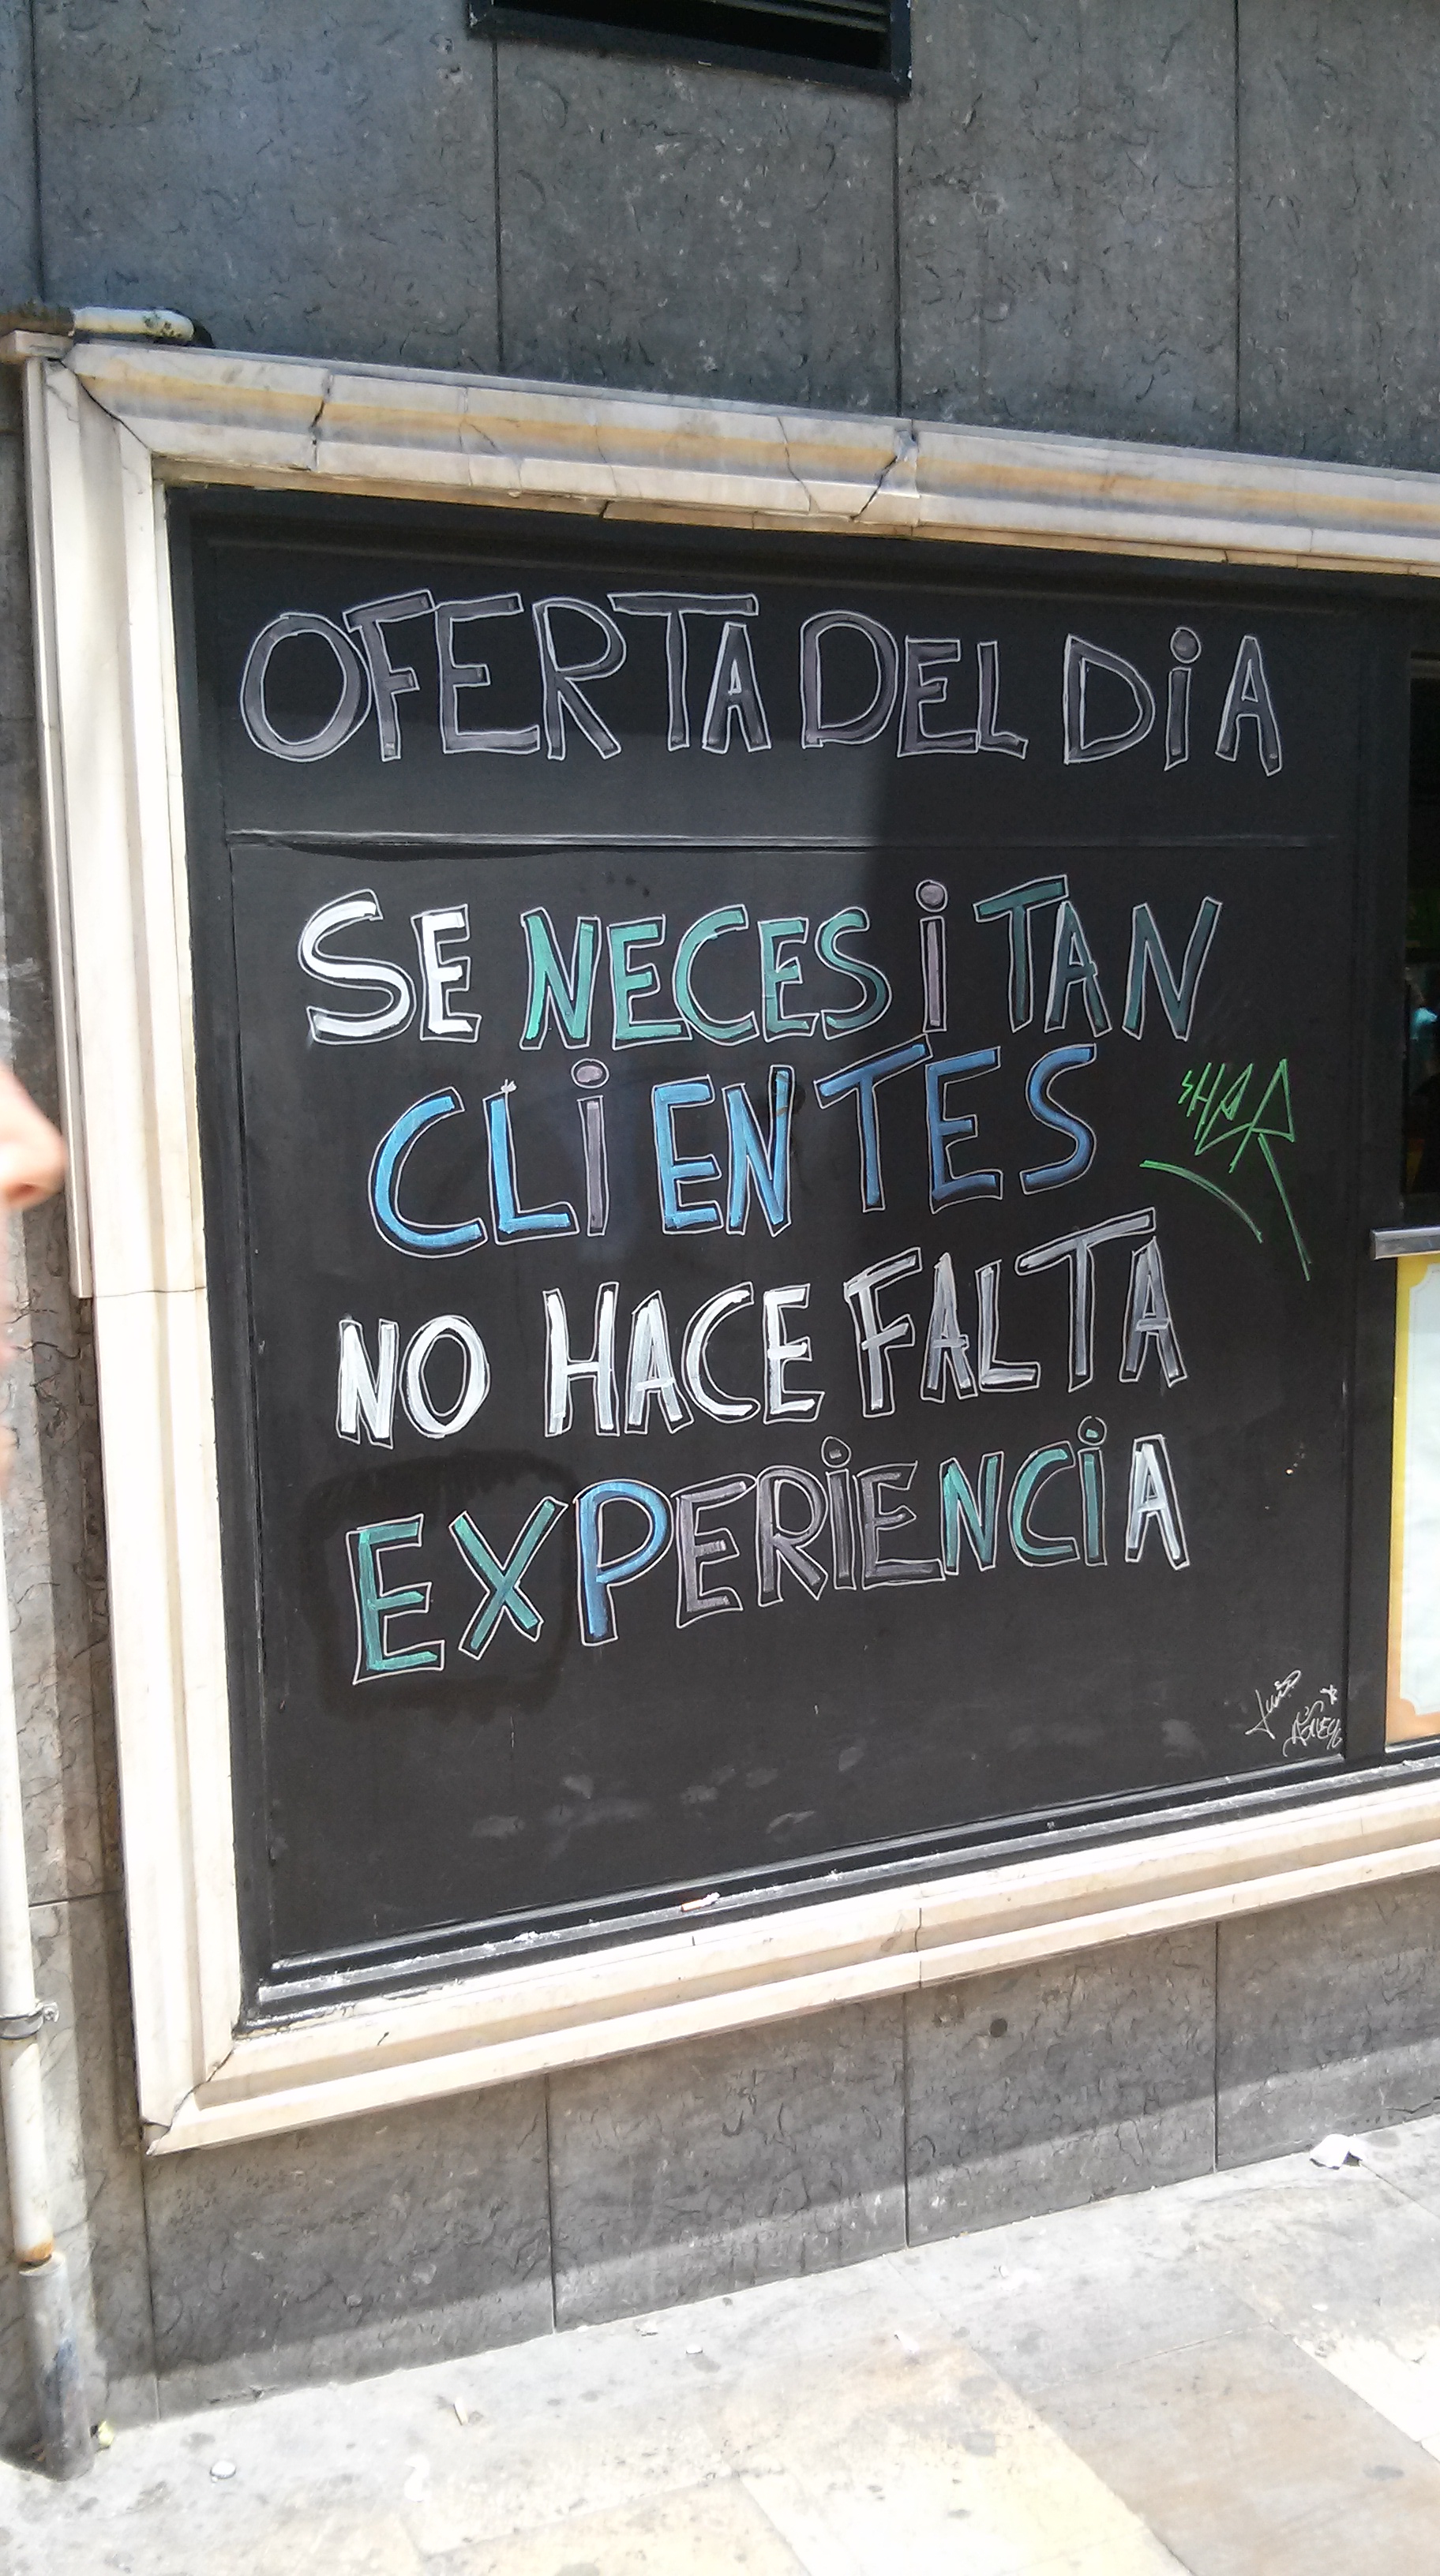 OFERTA DEL DiA
SE NECESiTAN
CLiENTES
SHER
NO HACE FALTA
EXPERiENCiA